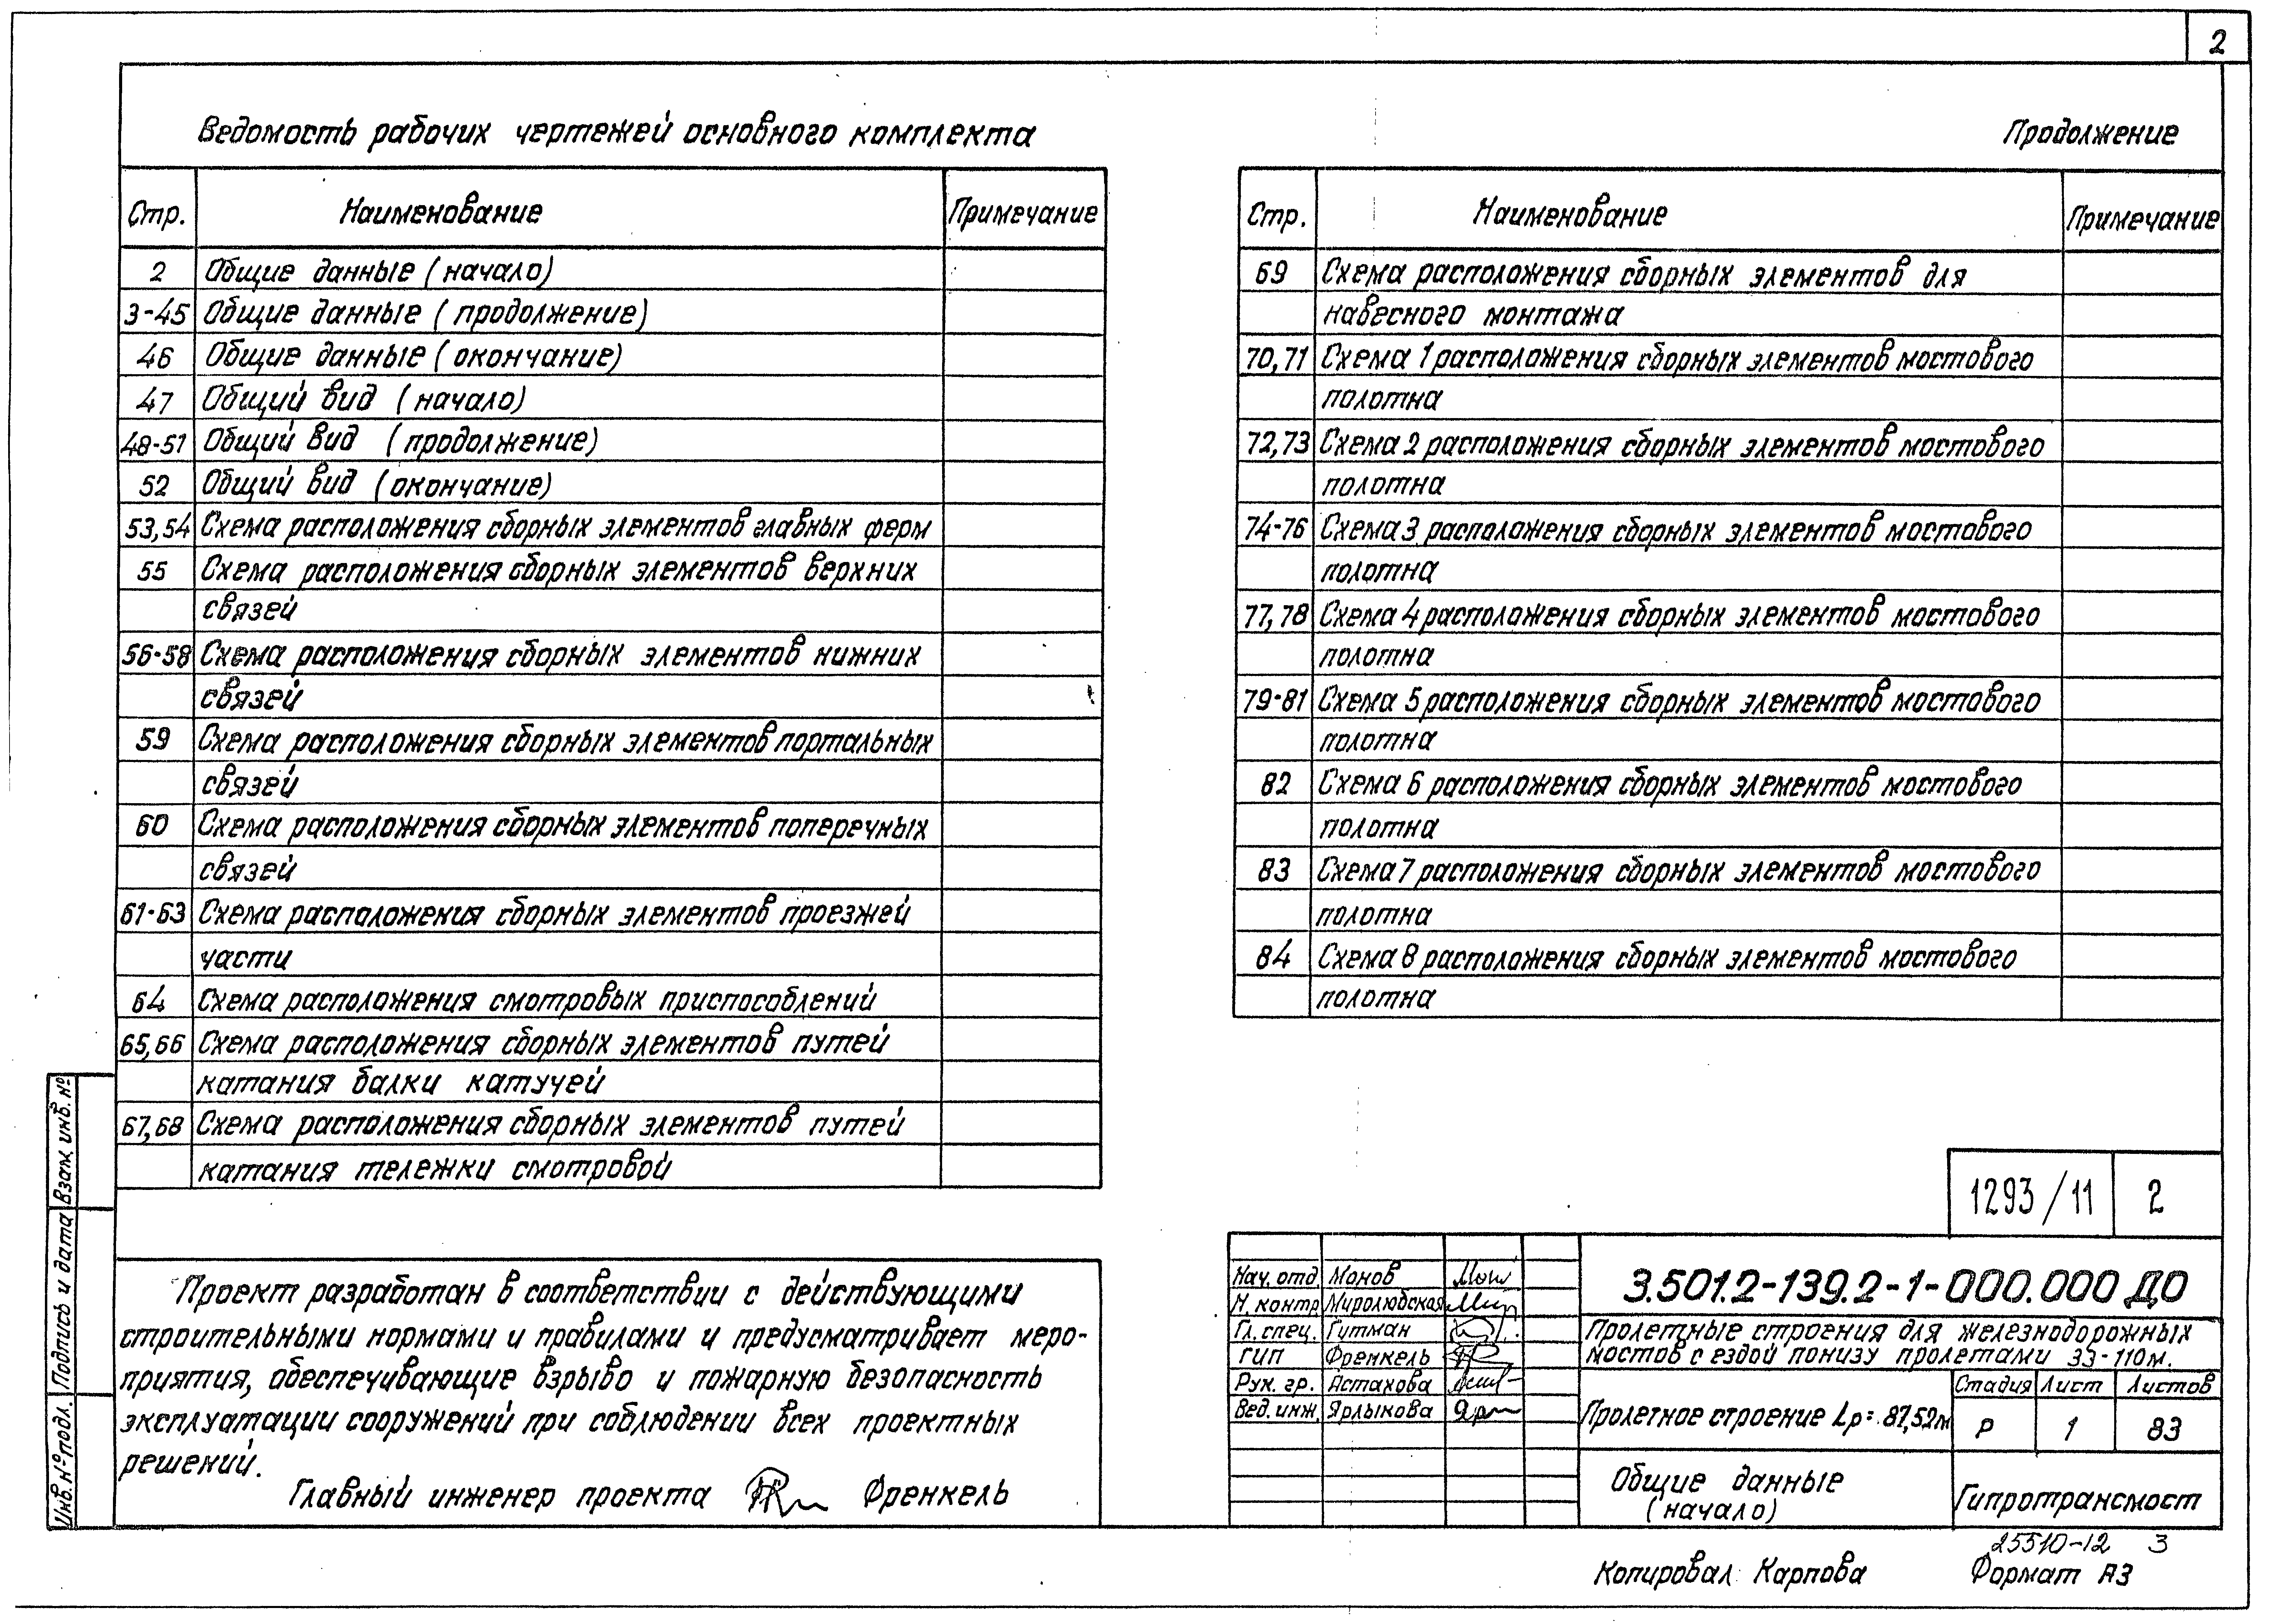 2
Ведомость рабочих чертежей основного комплекта
Стр. Наименование Примечание
2 Общие данные (начало)
3-45 Общие данные (продолжение)
46 Общие данные (окончание)
47 Общий вид (начало)
48-51 Общий вид (продолжение)
52 Общий вид (окончание)
53,54 Схема расположения сборных элементов главных ферм
55 Схема расположения сборных элементов верхних
связей
56-58 Схема расположения сборных элементов нижних
связей
59 Схема расположения сборных элементов портальных
связей
60 Схема расположения сборных элементов поперечных
связей
61-63 Схема расположения сборных элементов проезжей
части
64 Схема расположения смотровых приспособлений
65,66 Схема расположения сборных элементов путей
катания балки катучей
67,68 Схема расположения сборных элементов путей
катания тележки смотровой
Продолжение
Стр. Наименование Примечание
69 Схема расположения сборных элементов для
навесного монтажа
70,71 Схема 1 расположения сборных элементов мостового
полотна
72,73 Схема 2 расположения сборных элементов мостового
полотна
74-76 Схема 3 расположения сборных элементов мостового
полотна
77,78 Схема 4 расположения сборных элементов мостового
полотна
79-81 Схема 5 расположения сборных элементов мостового
полотна
82 Схема 6 расположения сборных элементов мостового
полотна
83 Схема 7 расположения сборных элементов мостового
полотна
84 Схема 8 расположения сборных элементов мостового
полотна
Проект разработан в соответствии с действующими
строительными нормами и правилами и предусматривает меро-
приятия, обеспечивающие взрыво и пожарную безопасность
эксплуатации сооружений при соблюдении всех проектных
решений.
Главный инженер проекта Френкель
Взам. инв. №
Подпись и дата
Инв. № подл.
1293/11 2
Нач. отд. Монов
Н. контр Миролюбская
Гл. спец. Гутман
ГИП Френкель
Рук. гр. Астахова
Вед. инж. Ярлыкова
3.501.2-139.2-1-000.000 ДО
Пролетные строения для железнодорожных
мостов с ездой понизу пролетами 33-110м.
Пролетное строение Lр=87,52м
Стадия Лист Листов
Р 1 83
Общие данные
(начало)
Гипротрансмост
25510-12 3
Копировал: Карпова Формат А3